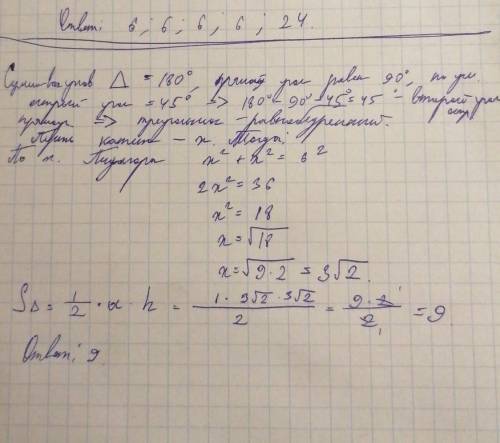 Ответ: 6 ; 6 ; 6 ; 6 ; 24.
Сумма всех углов Δ = 180°, прямой угол равен 90°, по усл.
острый угол = 45° → 180° - 90° - 45° = 45° - второй угол
→ треугольник - равнобедренный.
катет - x. Тогда:
По т. Пифагора x² + x² = 6²
2x² = 36
x² = 18
x = √18
x = √9·2 = 3√2.
SΔ = 1/2 · a · h = 1 · 3√2 · 3√2 / 2 = 9 · 2 / 2 = 9
Ответ: 9